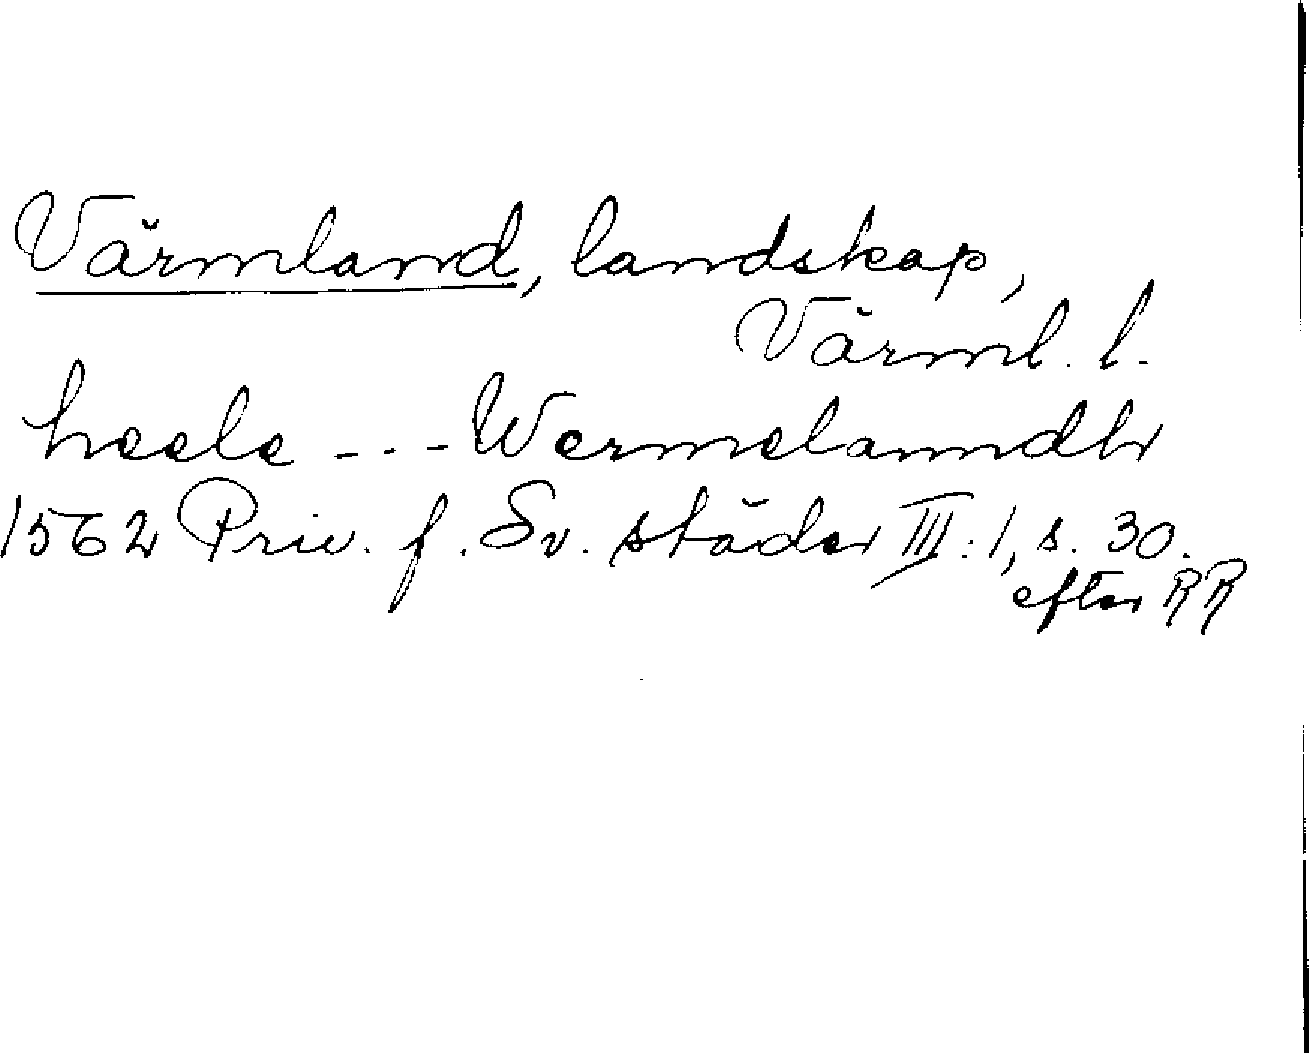 Värmland, landskap,
Värml. l.
heele --- Wermelanndh
1562 Priv. f. Sv. städer III:1, s. 30.
efter RR